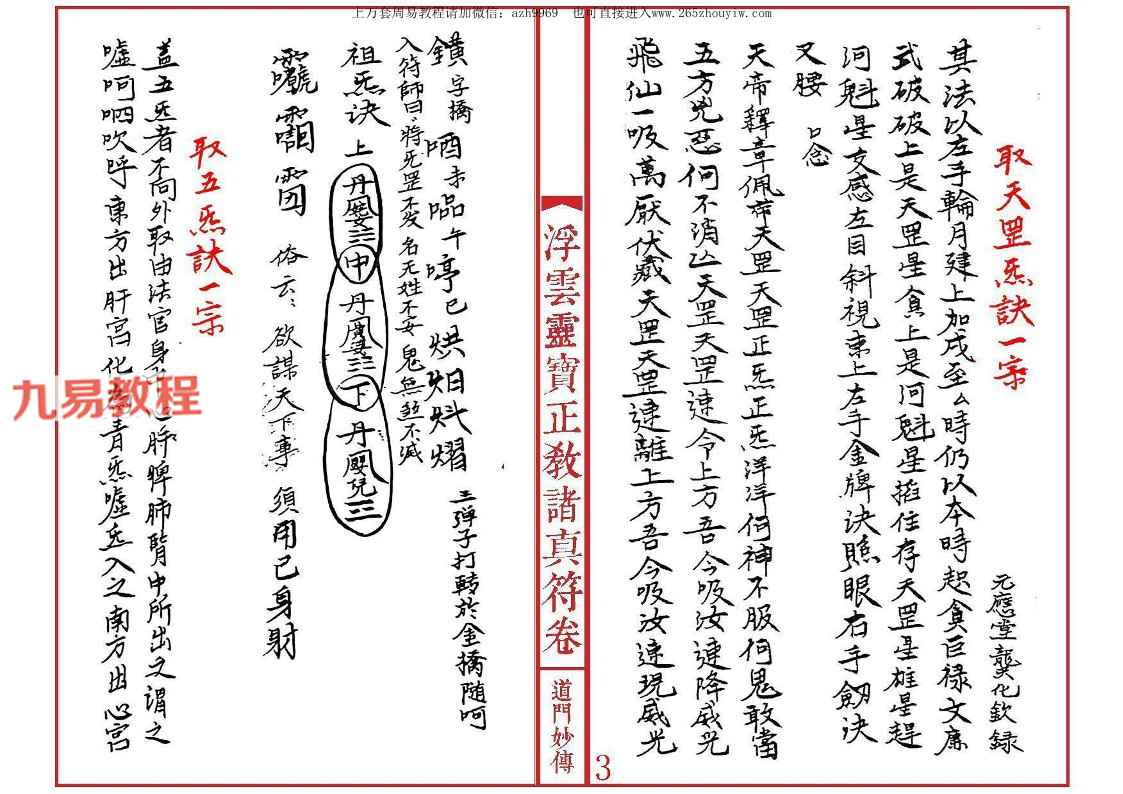 上万套周易教程请加微信：azh9969 也可直接进入www.265zhouyiw.com
取天罡炁訣一宗
元應堂龔化欽録
其法以左手輪月建上加戍至么時仍以本時起貪巨禄文廉
武破破上是天罡星貪上是河魁星掐住存天罡星雄星趕
河魁星交感左目斜視東上左手金牌决照眼右手劍决
叉腰 口念
天帝釋章佩帶天罡天罡正炁正炁洋洋何神不服何鬼敢當
五方兇惡何不消亾天罡天罡速令上方吾今吸汝速降威光
飛仙一吸萬厭伏藏天罡天罡速離上方吾今吸汝速現威光
浮雲靈寶正教諸真符卷
道門妙傳
3
字橋 未 午 巳 三彈子打轉於金橋随呵
入符師曰将炁罡不发名无姓不安鬼無煞不滅
祖炁决 上 丹 中 丹 下 丹
俗云：欲謀天下事 須用己身射
取五炁訣一宗
蓋五炁者不向外取由法官身 肝脾肺腎中所出之謂之
嘘呵呬吹呼東方出肝宫化為青炁嘘炁入之南方出心宫
九易教程